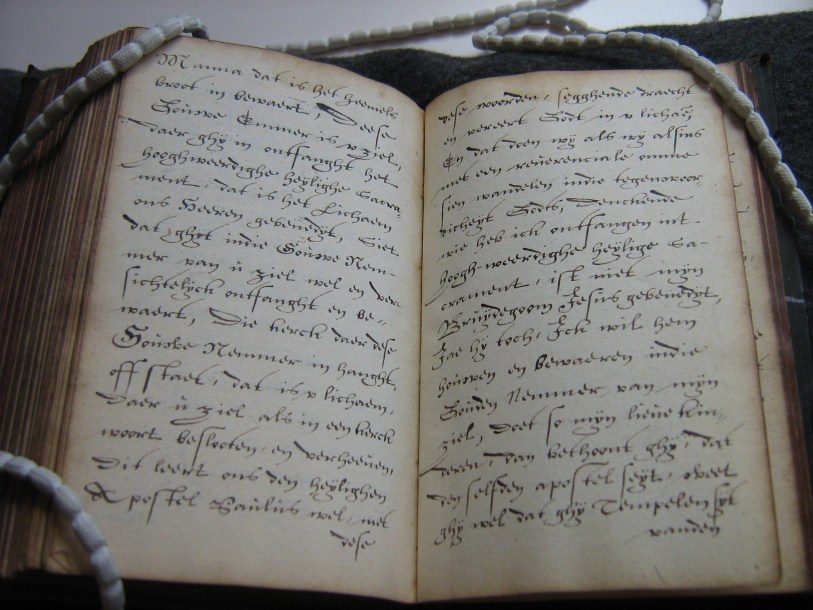 Manna dat is het heemels
broot in bewaert, Deese
Gouwe Emmer is v ziel,
daer ghÿ in ontfanght het
hooghweerdighe heÿlighe Sacra-
ment, dat is het Lichaem
ons Heeren gebenedÿt, Siet
dat ghÿt indie Gouwe Nem-
mer van ù ziel wel en ver
sichtelÿck ontfanght en be-
waert, Die kerck daer dese
Gouwe Nemmer in hanght,
off staet, dat is v lichaem,
daer ù ziel als in een kerck
woort besloten, en verheeven,
dit leert ons den heÿlighen
Apostel Paulus wel, met
dese
dese woorden, segghende draecht
en vereert Godt in v lichaem
En dat doen wÿ als wÿ alsins
met een reuerenciale omme
sien wandelen indie tegenwoor-
dicheÿt Godts, Denckende
wie heb ick ontfangen int
hoogh-weerdighe heÿlige Sa-
crament, ist niet mÿn
Bruÿdegoom Jesus gebenedÿt,
Jae hÿ toch, Ick wil hem
houwen en bewaeren indie
Gouden Nemmer van mÿn
ziel, Doet so mÿn lieve kin-
deren, dan bethoont ghÿ, dat
den selfden apostel seÿt, weet
ghÿ wel dat ghÿ Tempelen sÿt
vanden